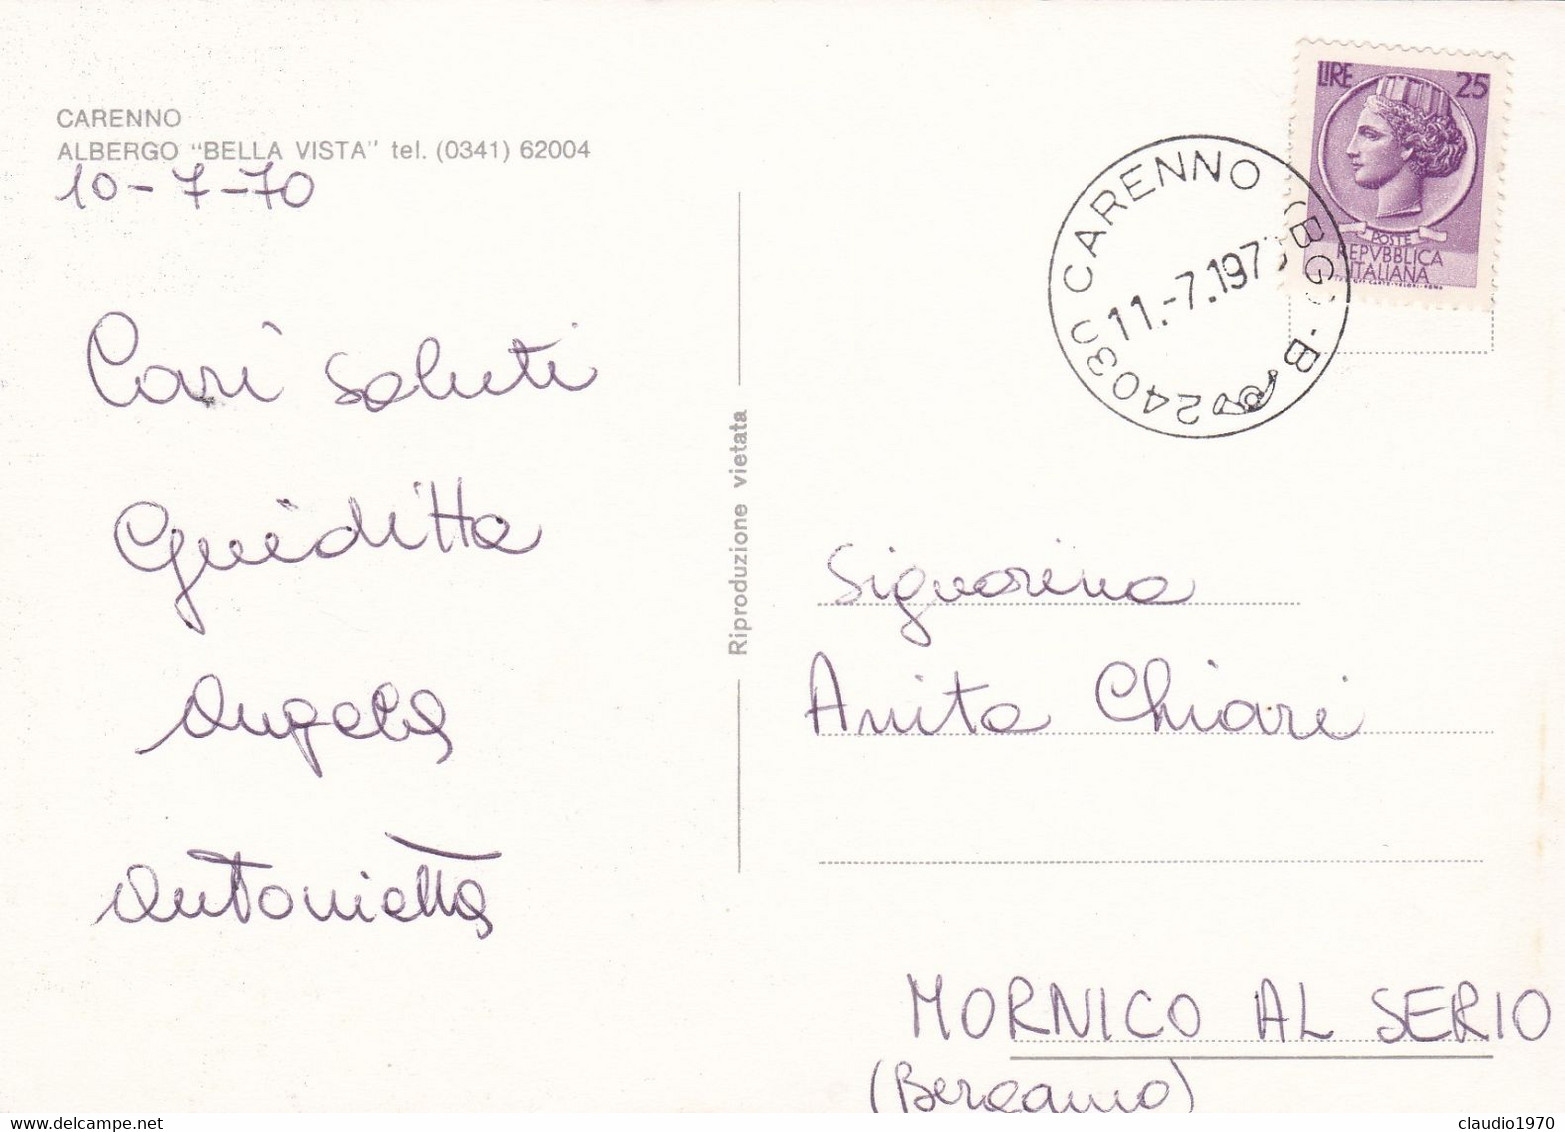 CARENNO
ALBERGO "BELLA VISTA" tel. (0341) 62004
10-7-70
Cari saluti
Giuditta
Angela
Antonietta
Riproduzione vietata
LIRE 25
POSTE
REPVBBLICA
ITALIANA
24030 CARENNO (BG) - B
11.-7.197
Signorina
Anita Chiari
MORNICO AL SERIO
(Bergamo)
www.delcampe.net
claudio1970